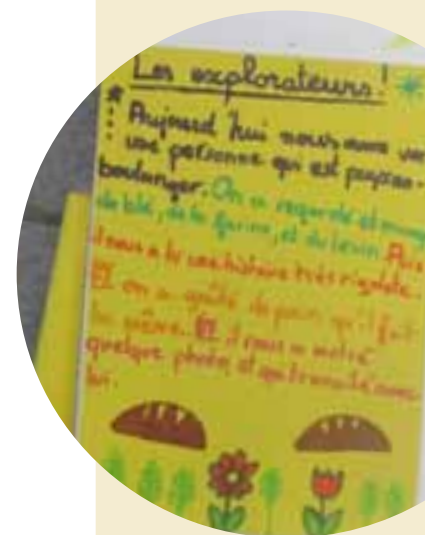 Les explorateurs!
Aujourd'hui nous avons vu
une personne qui est paysan-
boulanger. On a regardé et mangé
du blé, de la farine, et du levain. Puis
il nous a lu une histoire très rigolote.
ET on a goûté du pain qu'il fait
lui même. ET il nous a
quelque photos et qui avec
lui.